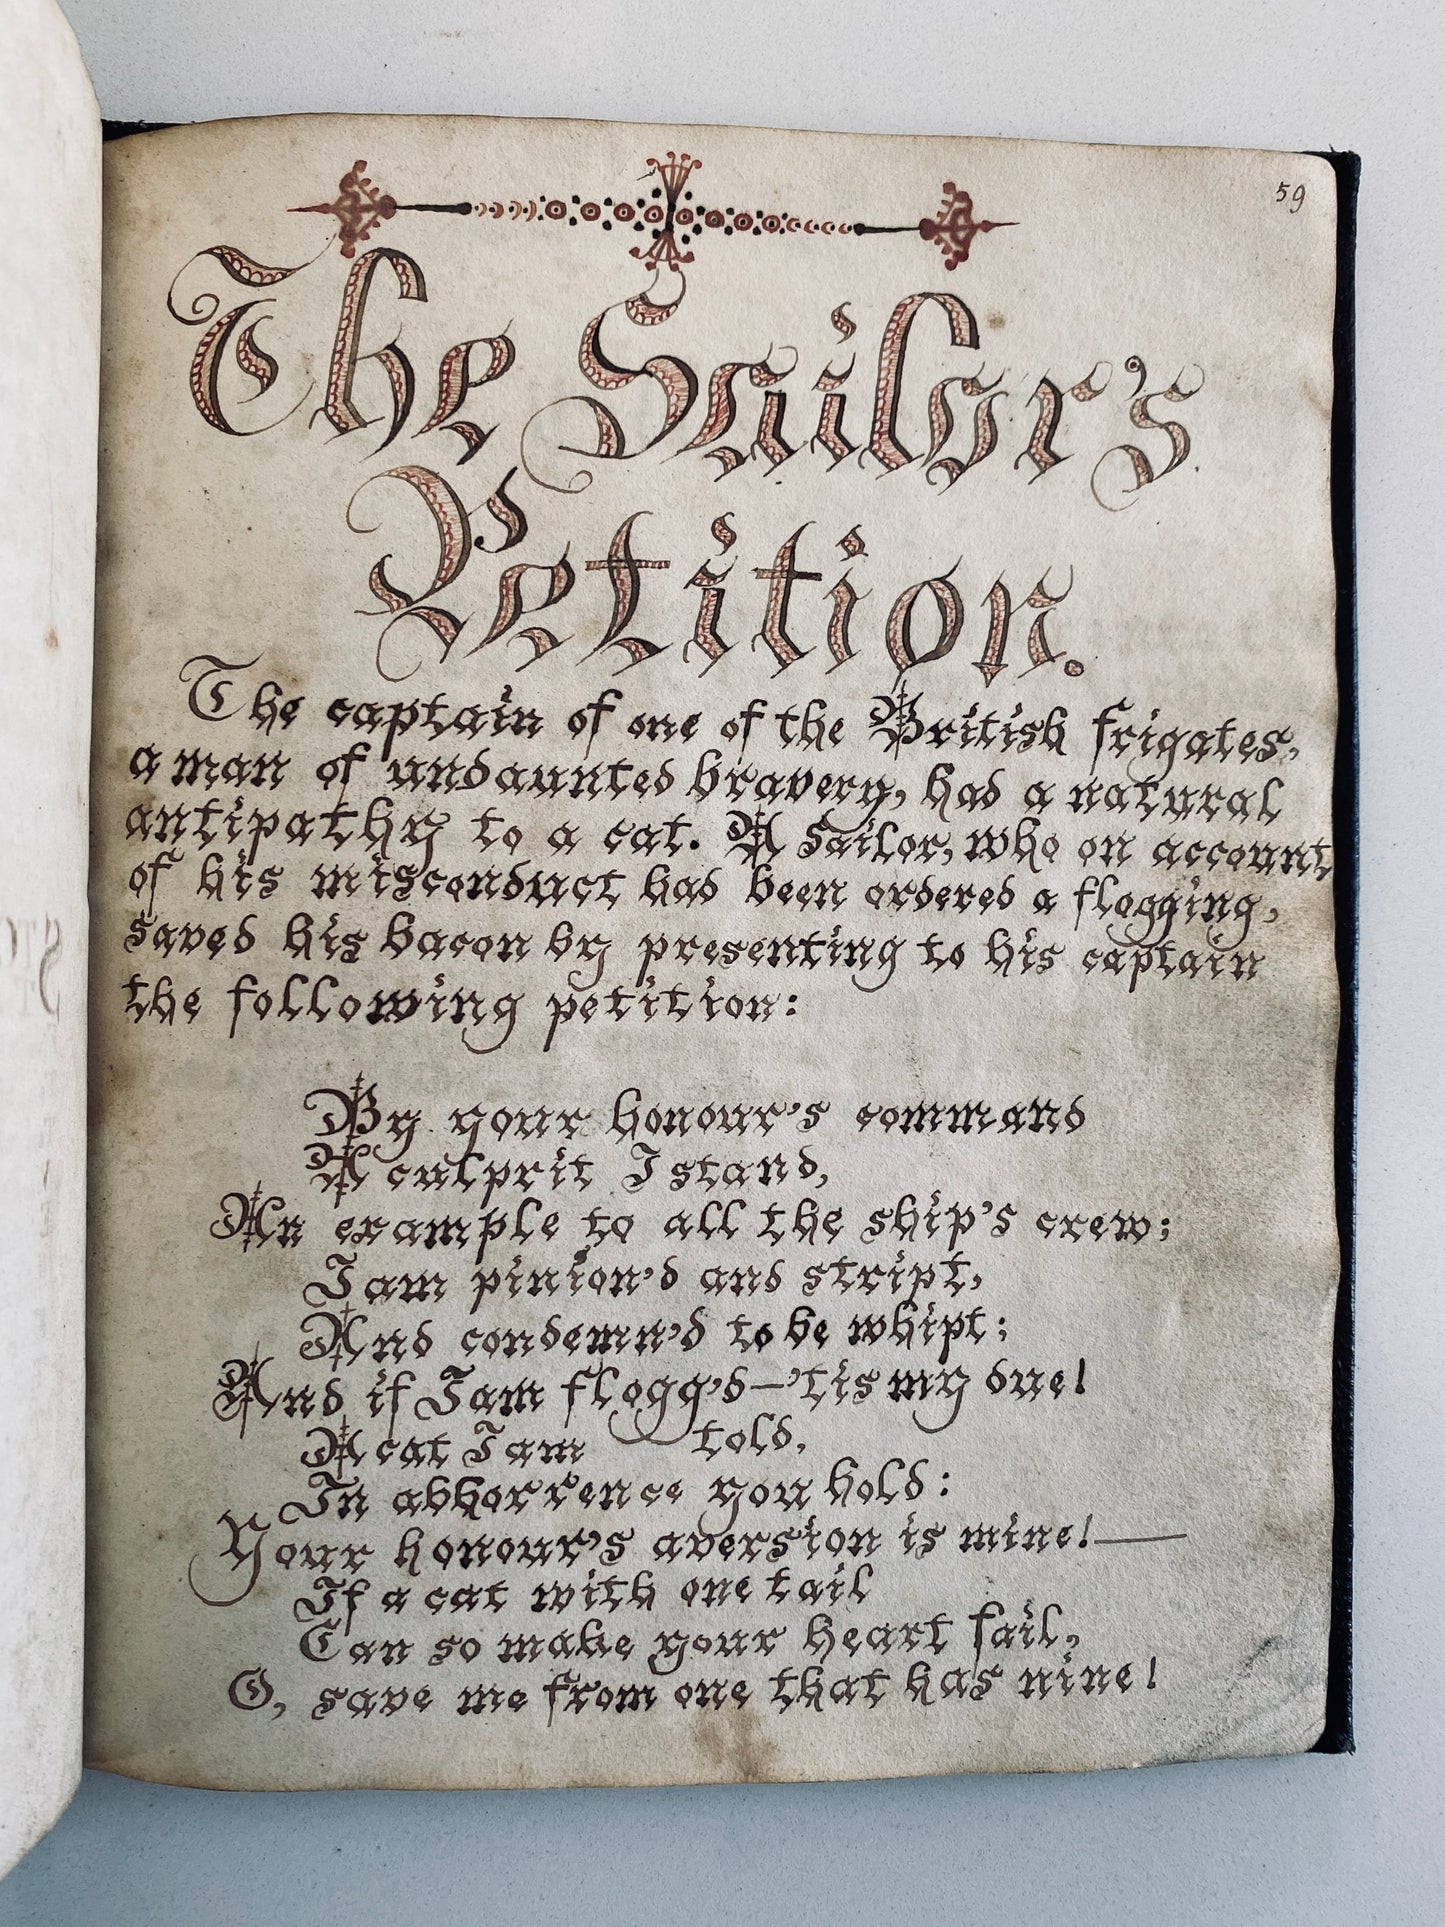 59
The Sailor's
Petition.
The captain of one of the British frigates,
a man of undaunted bravery, had a natural
antipathy to a cat. A sailor, who on account
of his misconduct had been ordered a flogging,
saved his bacon by presenting to his captain
the following petition:
By your honour's command
A culprit I stand,
An example to all the ship's crew;
I am pinion'd and stript,
And condemn'd to be whipt;
And if I am flogg'd—'tis my due!
A cat I am told,
In abhorrence you hold:
Your honour's aversion is mine!—
If a cat with one tail
Can so make your heart fail,
O, save me from one that has nine!